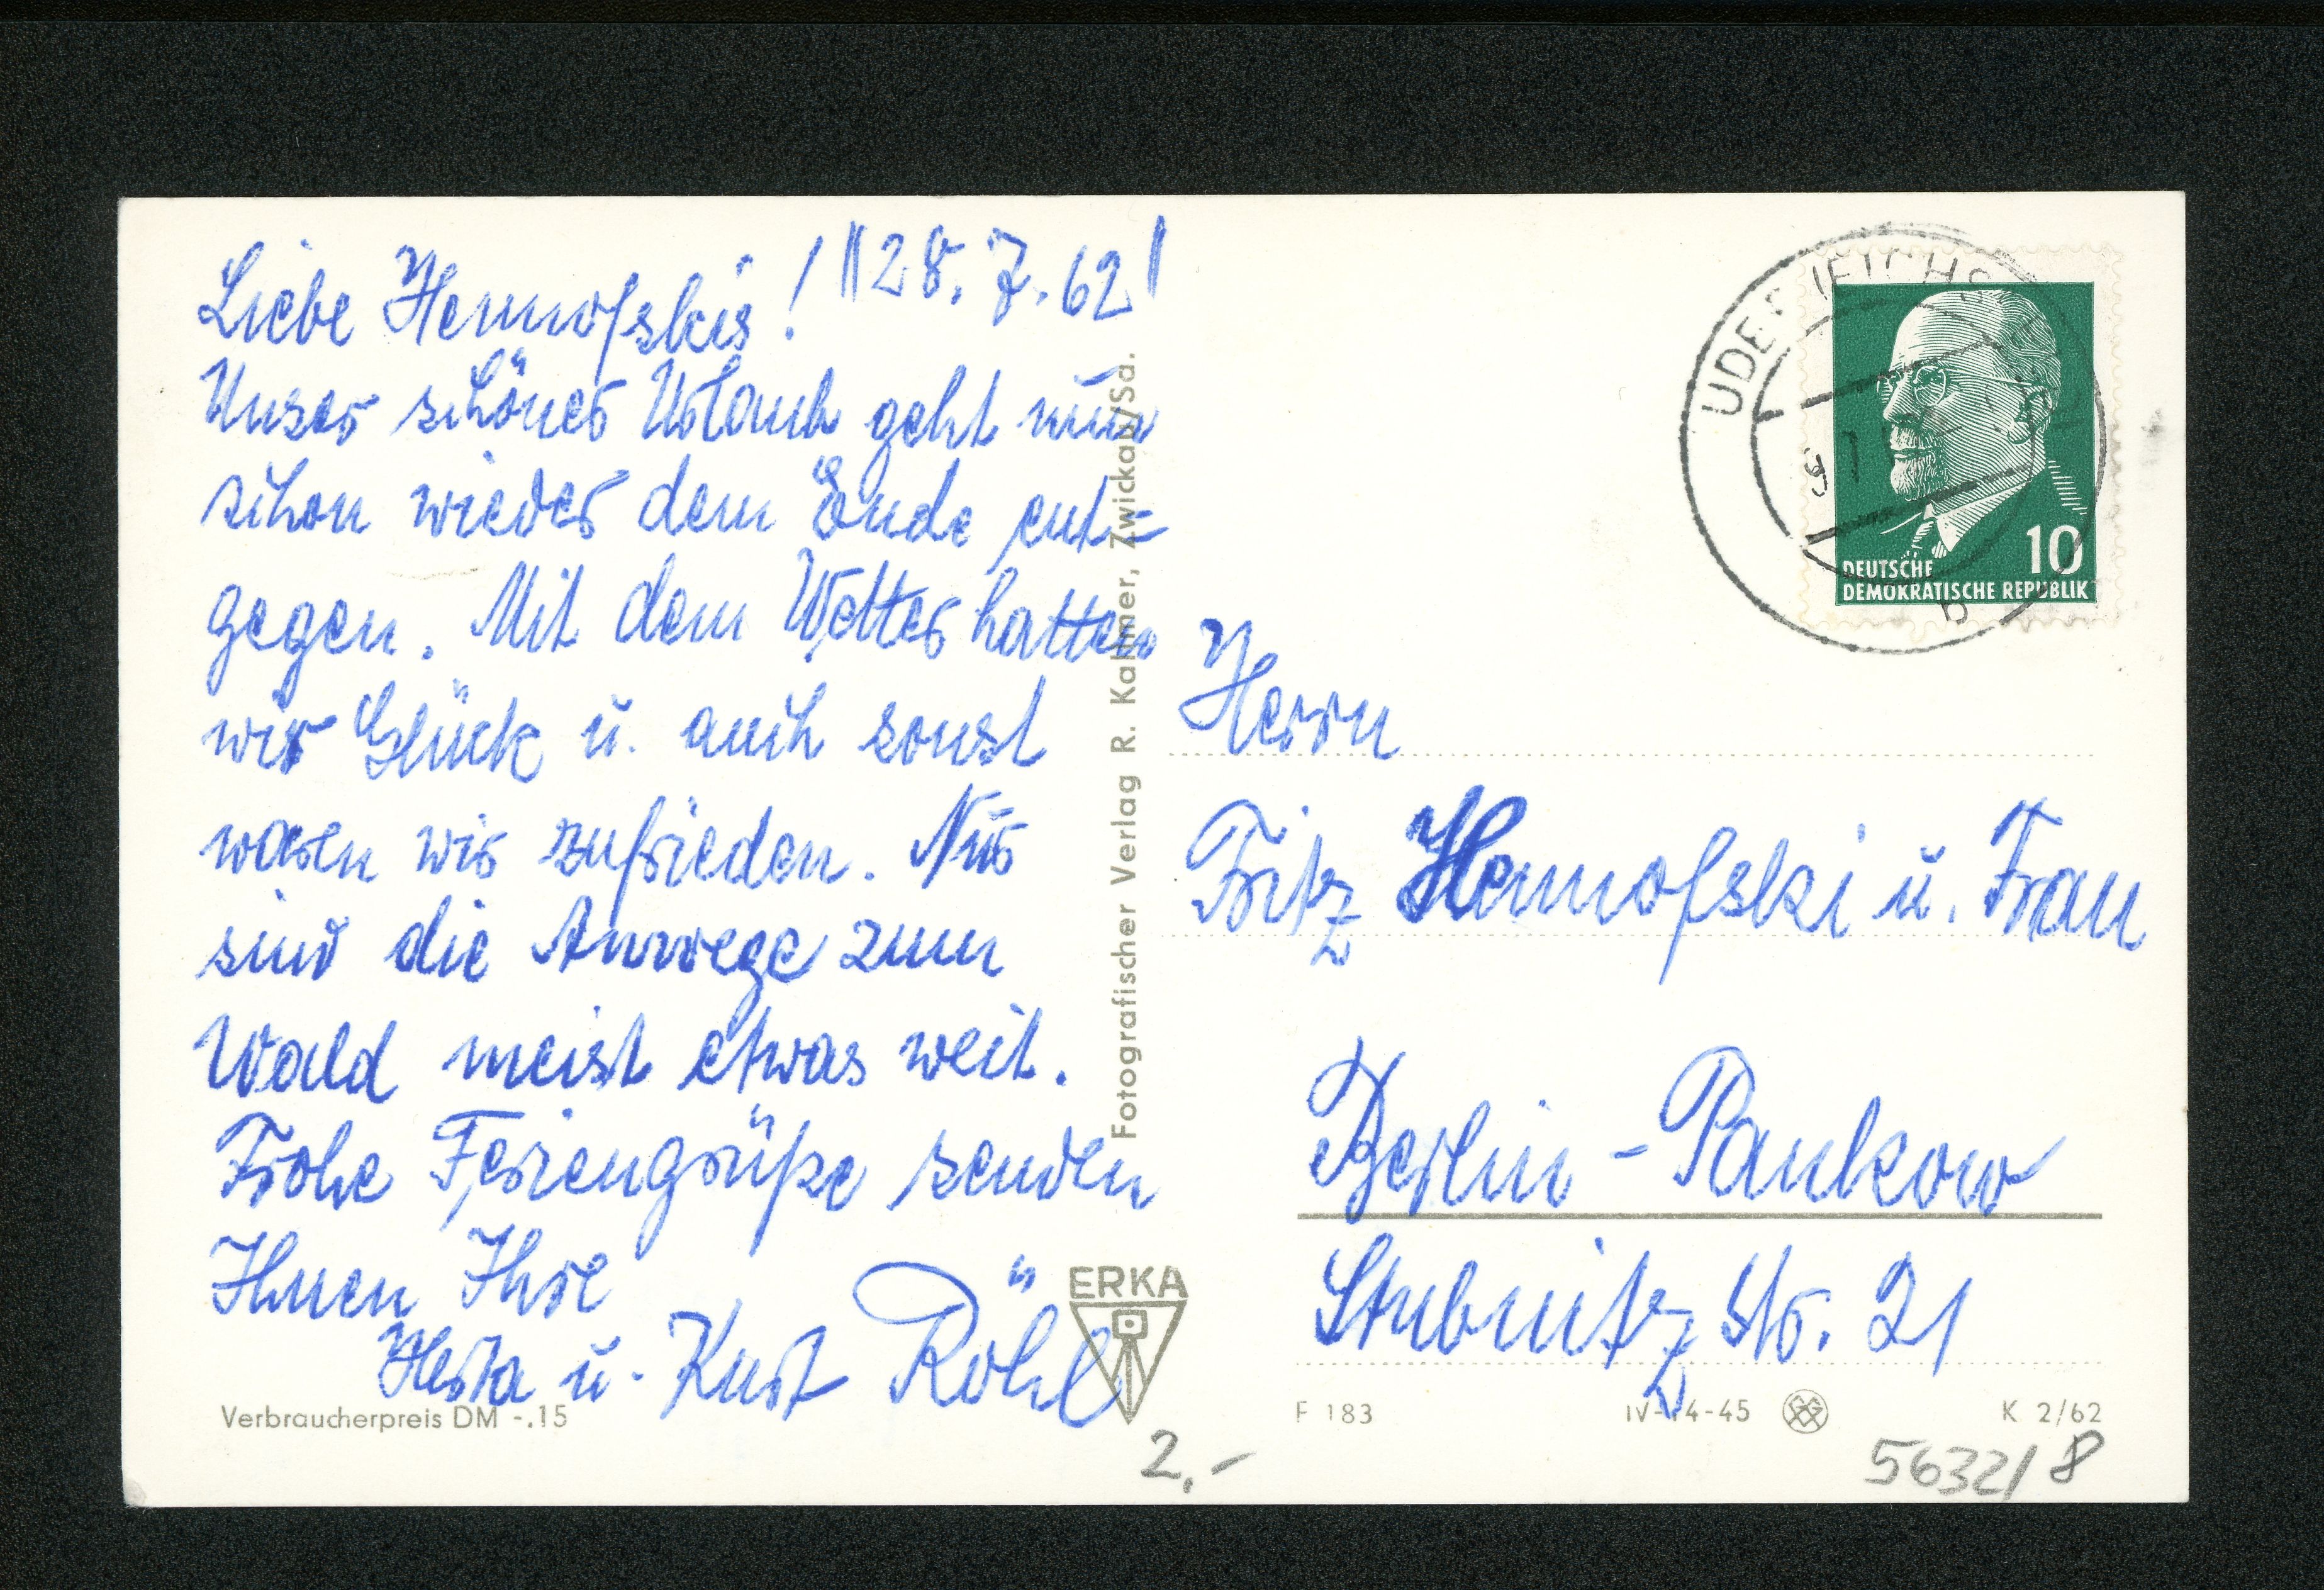 Liebe Hennofskis! 28.7.62
Unser schöner Urlaub geht nun
schon wieder dem Ende ent-
gegen. Mit dem Wetter hatten
wir Glück u. auch sonst
waren wir zufrieden. Nur
sind die Anwege zum
Wald meist etwas weit.
Frohe Feriengrüße senden
Ihnen Ihre
Herta u. Kurt Röhl
Verbraucherpreis DM -.15
Fotografischer Verlag R. Kallmer, Zwickau/Sa.
ERKA
DEUTSCHE
DEMOKRATISCHE REPUBLIK
10
b
Herrn
Fritz Hennofski u. Frau
Berlin-Pankow
Stubnitz Str. 21
F 183
IV-14-45
K 2/62
2,-
5632/8